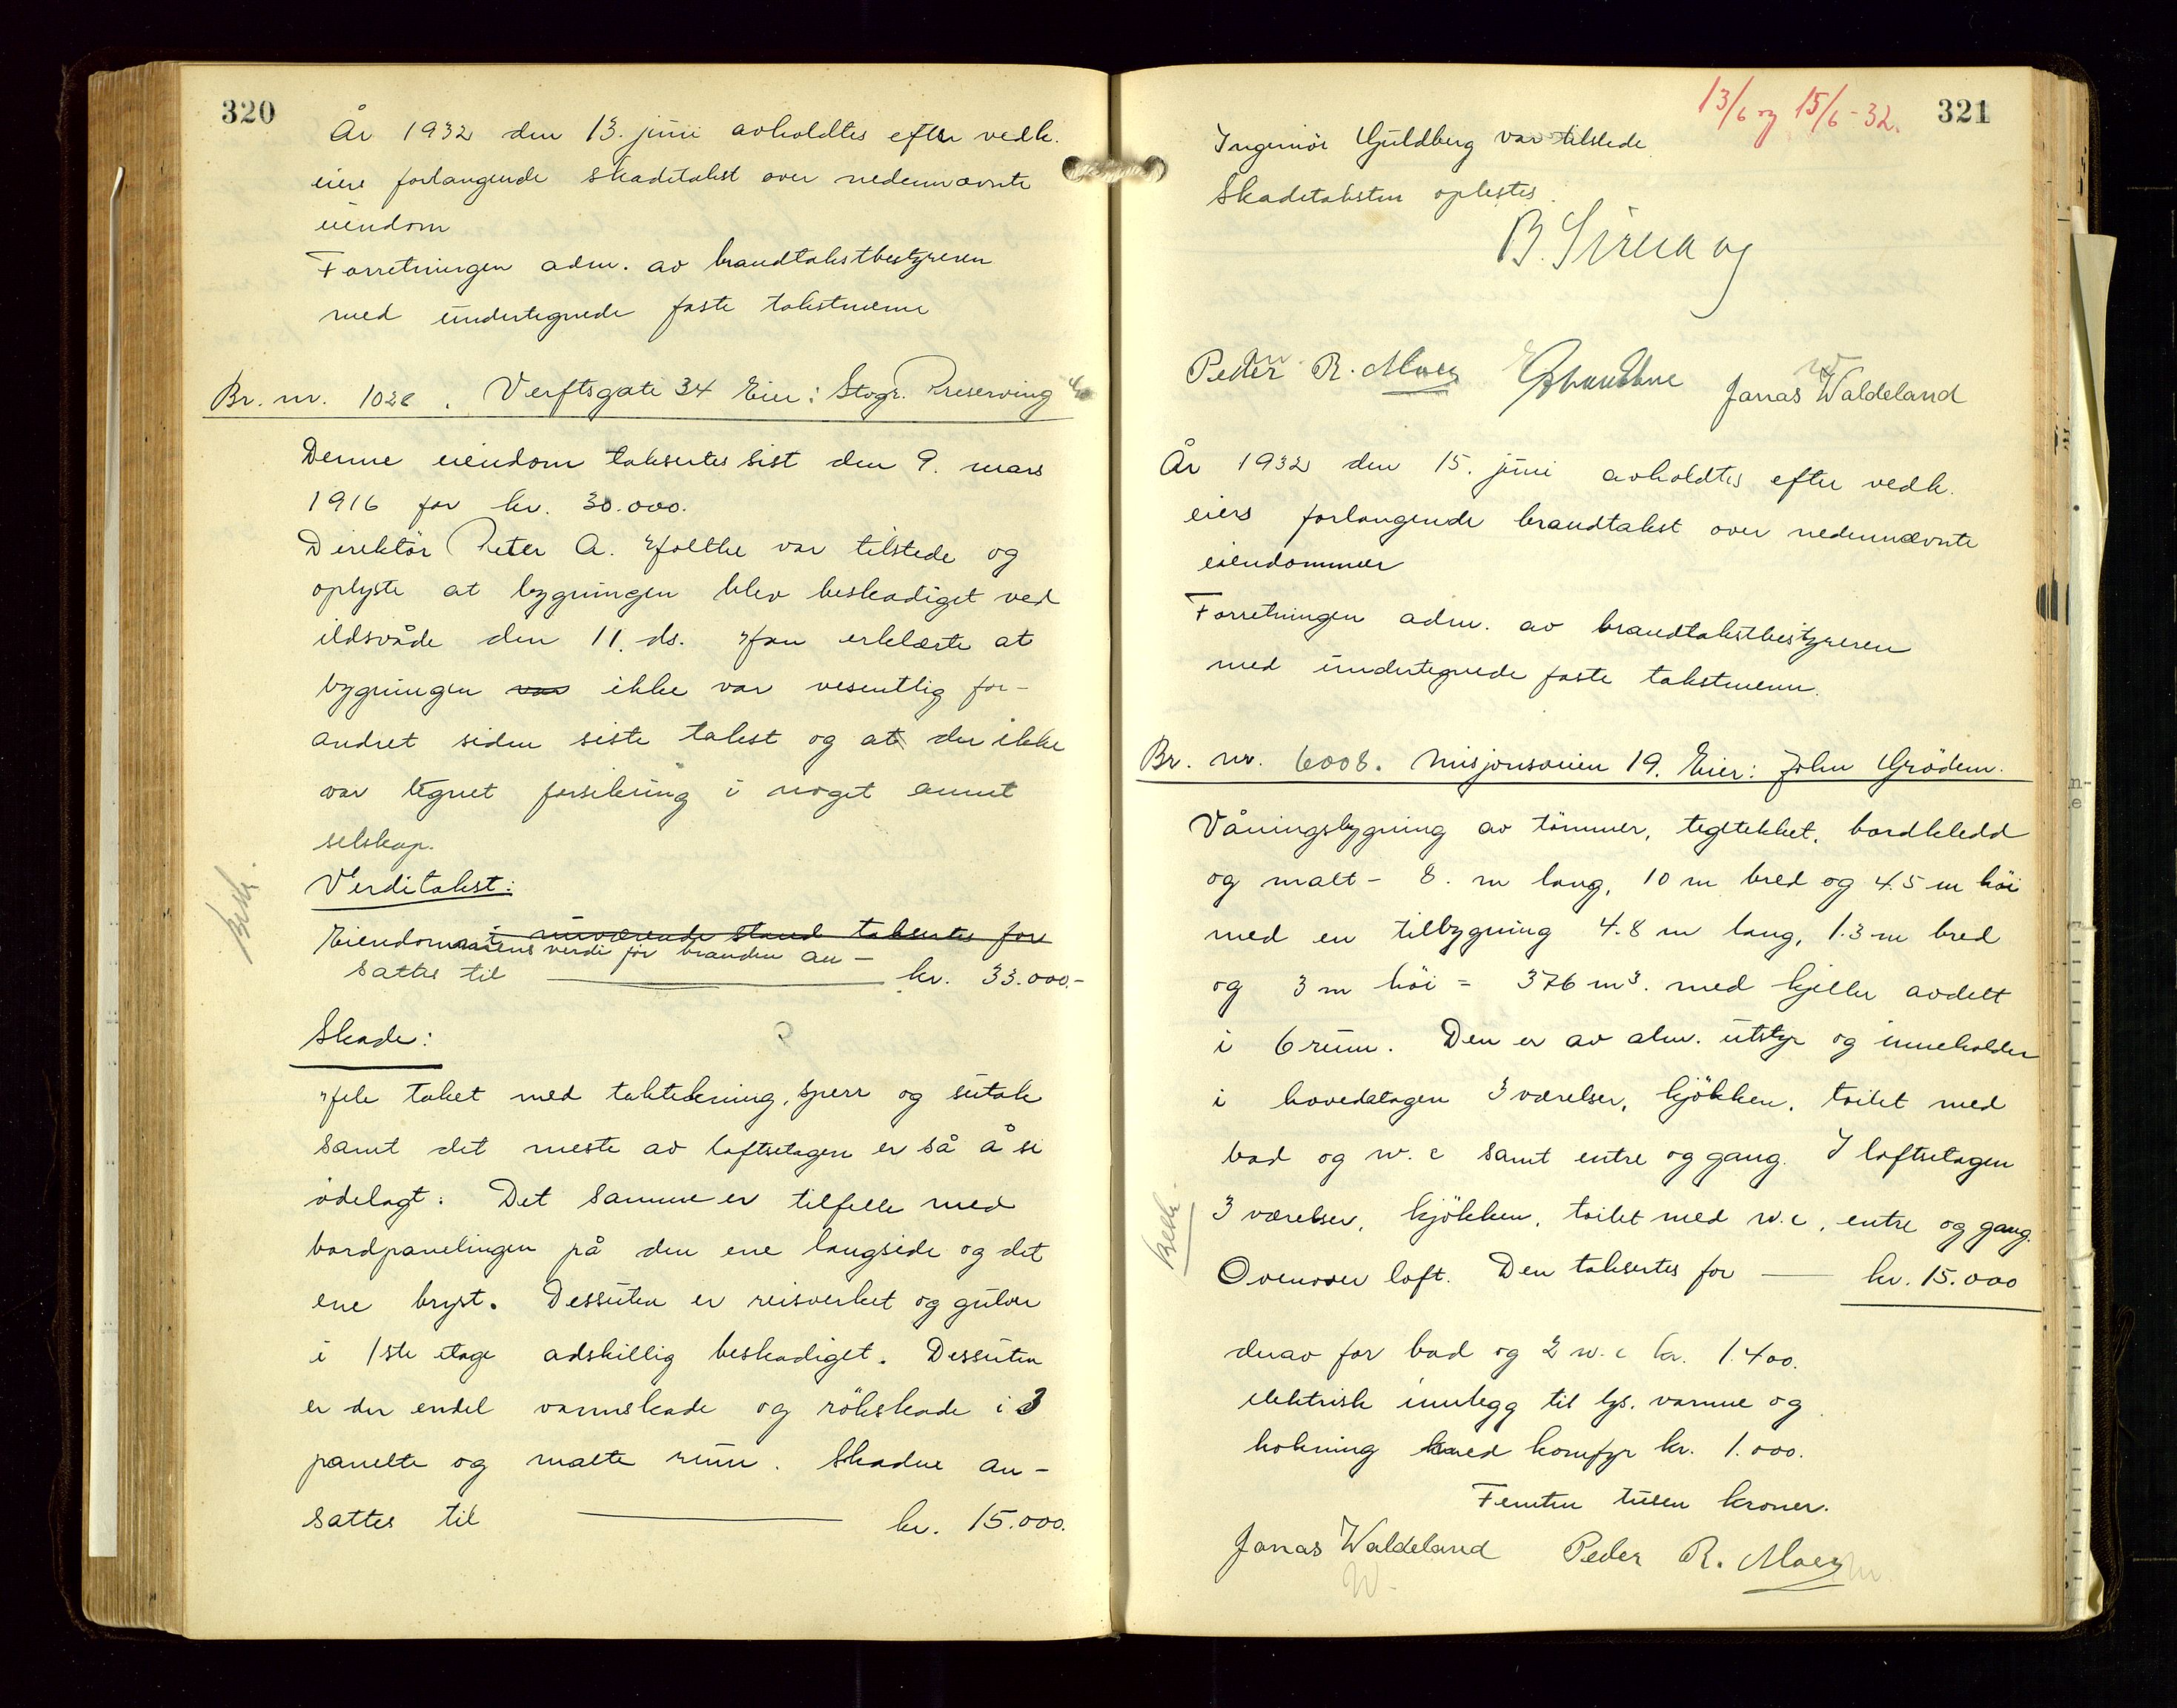 320
År 1932 den 13. juni avholdtes efter vedk.
eiers forlangende skadetakst over nedennævnte
eiendom
Forretningen adm. av brandtakstbestyreren
med undertegnede faste takstmenn
Br. nr. 1028. Verftsgate 34 Eier: Stvgr. Preserving Co
Denne eiendom taksertes sist den 9. mars
1916 for kr. 30.000.
Direktör Peter A. Holthe var tilstede og
oplyste at bygningen blev beskadiget ved
ildsvåde den 11. ds. Han erklærte at
bygningen var ikke var vesentlig for-
andret siden siste takst og at der ikke
var tegnet forsikring i noget annet
selskap.
Verditakst:
Besk.
Eiendommens verdi för branden an-
i nuværende stand takseres for
sattes til kr. 33.000.-
Skade:
Hele taket med taktekning, sperr og sutak
samt det meste av loftsetagen er så å si
ödelagt. Det samme er tilfelle med
bordpanelingen på den ene langside og det
ene bryst. Dessuten er reisverket og gulver
i 1ste etage adskillig beskadiget. Dessuten
er der endel vannskade og rökskade i 3
panelte og malte rum. Skaden an-
sattes til kr. 15.000.
13/6 og 15/6-32.
321
Ingeniör Guldberg var tilstede
Skadetaksten oplestes.
B. Sirevaag
Peder R. Moey Jonas Waldeland
År 1932 den 15. juni avholdtes efter vedk.
eiers forlangende brandtakst over nedennævnte
eiendommer
Forretningen adm. av brandtakstbestyreren
med undertegnede faste takstmenn.
Br. nr. 6008. Misjonsveien 19. Eier: John Grödem.
Våningsbygning av tömmer, tegltekket, bordkledd
og malt - 8. m lang, 10 m bred og 4.5 m höi
med en tilbygning 4.8 m lang, 1.3 m bred
og 3 m höi = 376 m3. med kjeller avdelt
i 6 rum. Den er av alm. utstyr og inneholder
i hovedetagen 3 værelser, kjökken, toilet med
bad og w.c samt entre og gang. I loftsetagen
3 værelser, kjökken, toilet med w.c, entre og gang.
Besk.
Ovenover loft. Den taksertes for kr. 15.000
derav for bad og 2 w.c kr. 1.400.
elektrisk innlegg til lys, varme og
kokning med komfyr kr. 1.000.
Femten tusen kroner.
Jonas Waldeland Peder R. Moey
W. m.